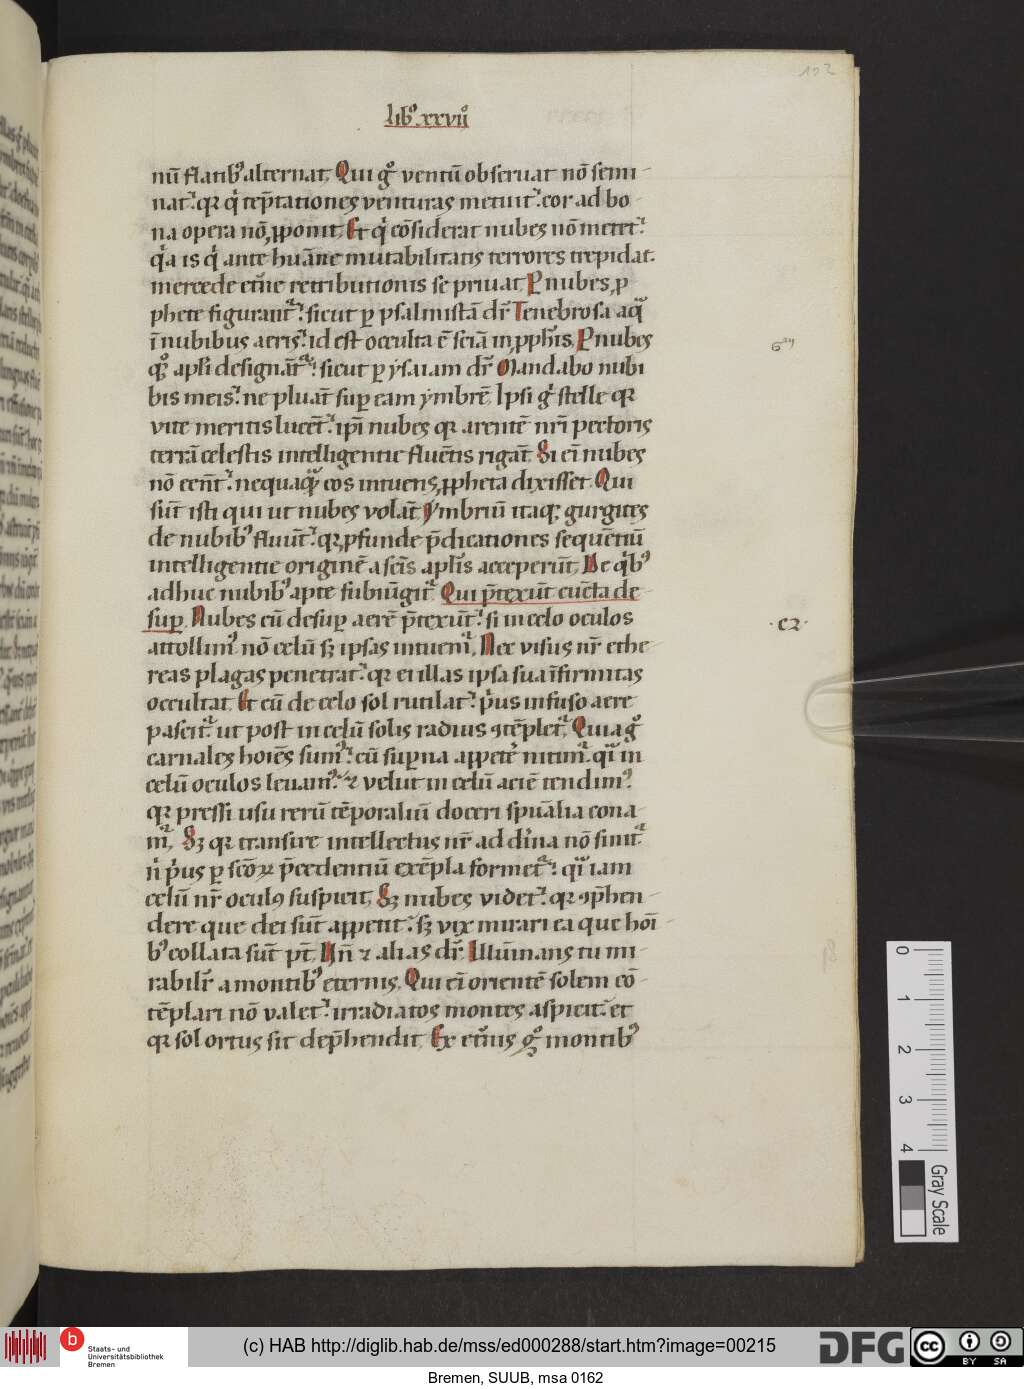 102
lib⁹ xxvii⁹
nū flatib⁹ alternat. Qui g̊ ventū obseruat nō semi-
nat. qꝛ q̇ tēptationes venturas metuit. cor ad bo-
na opera nō ꝓponit. Et q̇ cōsiderat nubes nō metet.
q̇a is q̇ ante humane mutabilitatis terrores trepidat.
mercede et̄ne retributionis se priuat. P nubes ꝓ
phete figurant̄. sicut ꝑ psalmistā dr̄ Tenebrosa aq̄
ī nubibus aeris. id est occulta ē sciā in ꝓph̄is. P nubes
qꝫ apl̄i designāt̄. sicut ꝑ ysaiam dr̄ Mandabo nubi
bis meis. ne pluāt suꝑ eam ymbrē. Ipsi g̊ stelle qꝛ
vite meritis lucēt. ip̄i nubes qꝛ arentē nr̄i pectoris
terrā celestis intelligentie fluētis rigāt. Si eī nubes
nō eēnt. nequaq̄ eos intuens ꝓpheta dixisset. Qui
sūt isti qui ut nubes volāt ymbriū itaqꝫ gurgites
de nubib⁹ fluūt. qꝛ ꝓfunde p̄dicationes sequētiū
intelligentie originē a sc̄is apl̄is acceperūt. De q̇b⁹
adhuc nubib⁹ apte subiūgit̄. Qui p̄texūt cūcta de
suꝑ. Nubes cū desuꝑ aerē p̄texūt. si in celo oculos
attollim⁹ nō celū sꝫ ipsas intuem̄. Nec visus nr̄ ethe-
reas plagas penetrat. qꝛ et illas ipsa sua īfirmitas
occultat. Et cū de celo sol rutilat. p̓us infuso aere
pascit̄. ut post in celū solis radius ꝯtēplet̄. Quia g̊
carnales hoīes sum⁹. cū suꝑna appetē nitim̄. q̄i in
celū oculos leuam⁹. ⁊ velut in celū aciē tendim⁹.
qꝛ pressi usu rerū tēporaliū doceri spūalia cona-
m̄. Sꝫ qꝛ transire intellectus nr̄ ad diu̇na nō sinit̄
n̓ p̓us ꝑ scōꝝ p̄cedentiū exēpla formet̄. q̄i iam
celū nr̄ oculꝯ suspicit. Sꝫ nubes videt. qꝛ ꝯp̄hen-
dere que dei sūt appetit. sꝫ vix mirari ea que hoī-
b⁹ collata sūt pt̄. Hn̄ ⁊ alias dr̄. Illuminans tu mi-
rabilr̄ a montib⁹ eternis. Qui eī orientē solem cō-
tēplari nō valet. irradiatos montes aspicit. et
qꝛ sol ortus sit dep̄hendit. Ex et̄nis g̊ montib⁹
.C2.
0 1 2 3 4
Gray Scale
b Staats- und
Universitätsbibliothek
Bremen
(c) HAB http://diglib.hab.de/mss/ed000288/start.htm?image=00215
DFG
cc BY SA
Bremen, SUUB, msa 0162